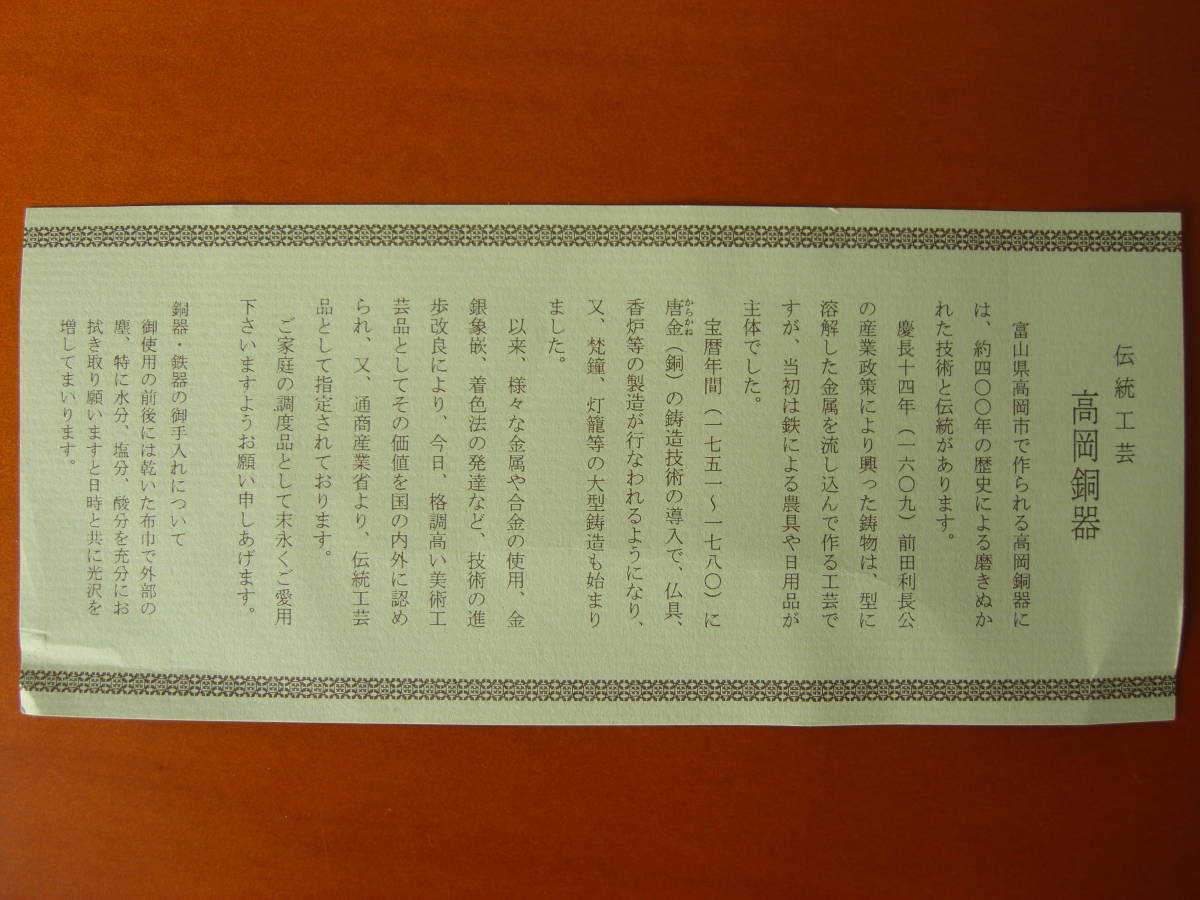 伝統工芸
高岡銅器
富山県高岡市で作られる高岡銅器に
は、約四〇〇年の歴史による磨きぬか
れた技術と伝統があります。
慶長十四年（一六〇九）前田利長公
の産業政策により興った鋳物は、型に
溶解した金属を流し込んで作る工芸で
すが、当初は鉄による農具や日用品が
主体でした。
宝暦年間（一七五一〜一七八〇）に
唐金（銅）の鋳造技術の導入で、仏具、
からかね
香炉等の製造が行なわれるようになり、
又、梵鐘、灯籠等の大型鋳造も始まり
ました。
以来、様々な金属や合金の使用、金
銀象嵌、着色法の発達など、技術の進
歩改良により、今日、格調高い美術工
芸品としてその価値を国の内外に認め
られ、又、通商産業省より、伝統工芸
品として指定されております。
ご家庭の調度品として末永くご愛用
下さいますようお願い申しあげます。
銅器・鉄器の御手入れについて
御使用の前後には乾いた布巾で外部の
塵、特に水分、塩分、酸分を充分にお
拭き取り願いますと日時と共に光沢を
増してまいります。